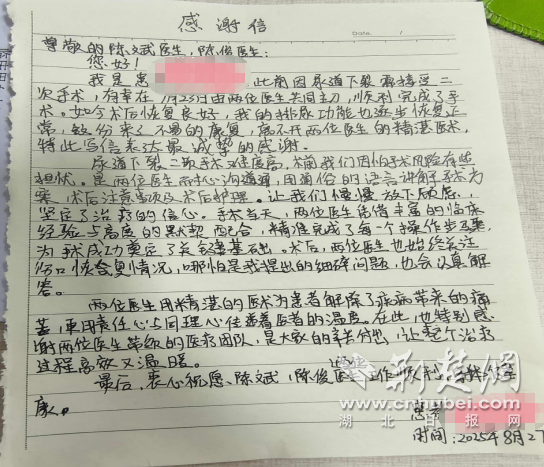 感谢信
Date
尊敬的陈斌医生,陈俊医生:
您好!
我是患 此前因尿道下裂需接受二
次手术,有幸在7月23日由两位医生共同主刀,顺利完成了手
术。如今术后恢复良好,我的排尿功能也逐步恢复正
常,这份来之不易的康复,离不开两位医生的精湛医术,
特此写信表达最诚挚的感谢。
尿道下裂二次手术难度高,术前我们因怕手术风险存些
担忧。是两位医生耐心沟通,用通俗的语言讲解手术方
案、术后注意事项及术后护理。让我们慢慢放下顾虑,
坚定了治疗的信心。手术当天,两位医生凭借丰富的临床
经验与高度的默契配合,精准完成了每个操作步骤,
为手术成功奠定了关键基础。术后,两位医生也始终关注
恢复情况,哪怕是我提出的细碎问题,也会认真解
答。
两位医生用精湛的医术为患者解除了疾病带来的痛
苦,更用责任心与同理心传递着医者的温度。在此,也特别感
谢两位医生带领的医疗团队,是大家的付出,让整个治疗
过程高效又温暖。
最后,衷心祝愿陈斌,陈俊医生工作顺利,身体健
康。
患者
时间:2025年8月2
荆楚网
www.cnhubei.com
湖北日报网